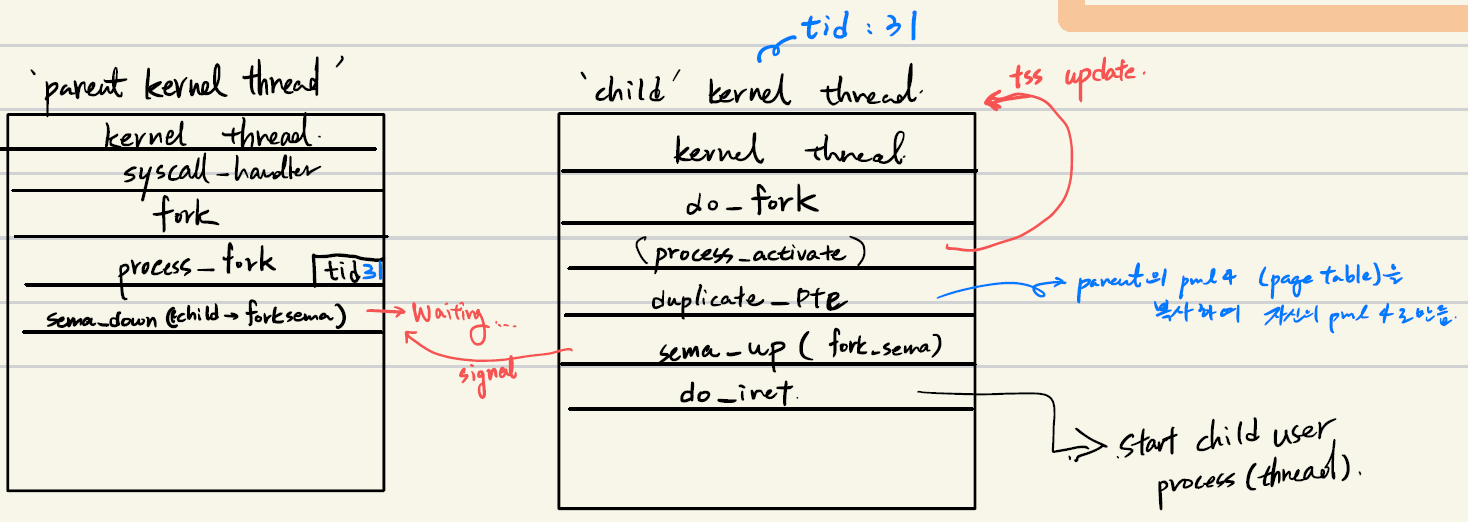 tid : 31
'parent kernel thread'
kernel thread.
syscall_handler
fork
process_fork tid31
sema_down (&child → forksema)
Waiting...
signal
'child' kernel thread.
tss update.
kernel thread.
do_fork
(process_activate)
duplicate_pte
parent의 pml4 (page table)을
복사하여 자신의 pml4로 만듦.
sema_up ( fork_sema)
do_iret.
Start child user
process (thread).